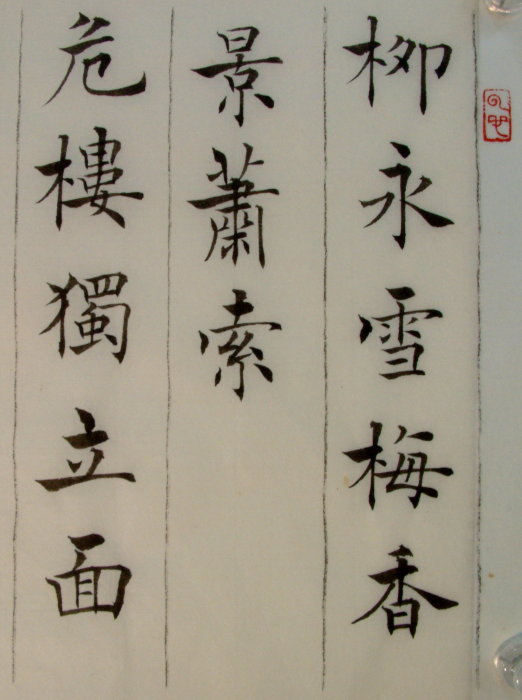 柳永雪梅香
景蕭索
危樓獨立面